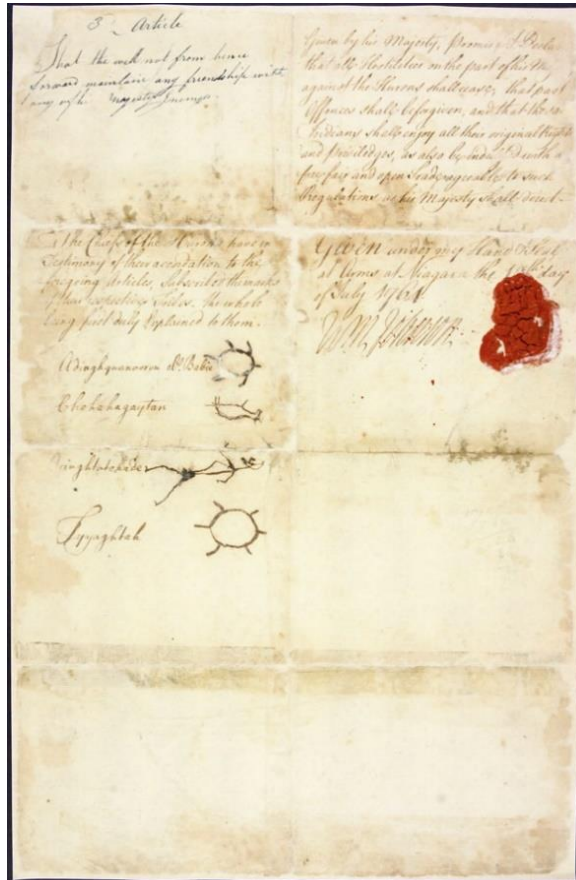 3 Article
That the will not from hence
forward maintain any friendship with
any of his Majestys Enemys
The Chiefs of the Hurons have in
Testimony of their accendation to the
foregoing articles, Subscribed the marks
of their respective Tribes. the whole
being first duly Explained to them.
Chohahagaytan
Given by his Majesty, Promise &
that all Hostilities on the part of his
against the Hurons shall cease, that past
Offences shall be forgiven, and that the
Indians shall enjoy all their original Rights
and priviledges, as also be with a
free fair and open trade, agreable to such
Regulations as his Majesty shall direct.
Given under my Hand & Seal
at Arms at Niagara the day
of July 1764
Wm Johnson